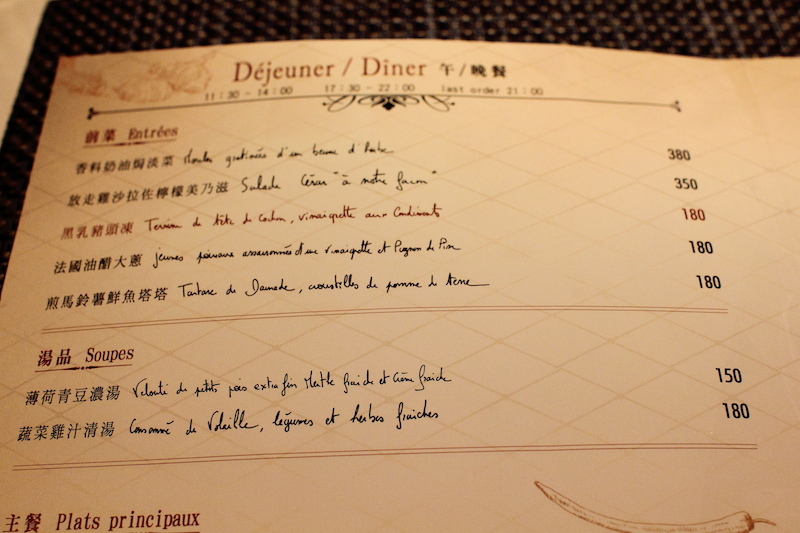 Déjeuner / Dîner 午/晚餐
11:30 - 14:00 17:30 - 22:00 last order 21:00
前菜 Entrées
香料奶油焗淡菜 Moules gratinées d'un beurre d'herbe 380
放走雞沙拉佐檸檬美乃滋 Salade César "à notre façon" 350
黑乳豬頭凍 Terrine de tête de Cochon, vinaigrette aux Condiments 180
法國油醋大蔥 jeunes poireaux assaisonnés d'une vinaigrette et Pignon de Pin 180
煎馬鈴薯鮮魚塔塔 Tartare de Daurade, croustilles de pomme de terre 180
湯品 Soupes
薄荷青豆濃湯 Velouté de petits pois extra fin Menthe fraiche et Crème fraiche 150
蔬菜雞汁清湯 Consommé de Volaille, légumes et herbes fraiches 180
主餐 Plats principaux